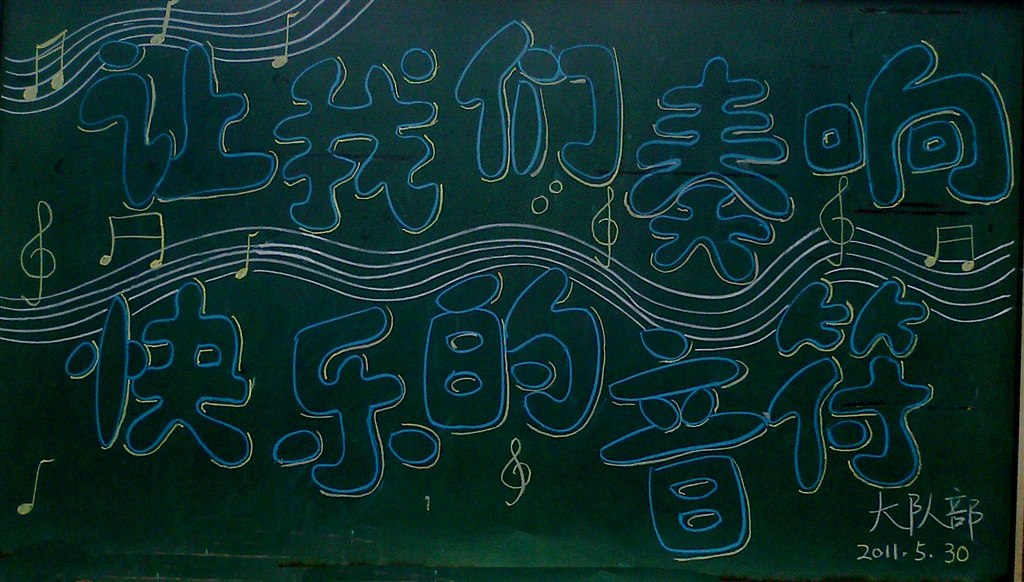 让我们奏响
快乐的音符
大队部
2011.5.30